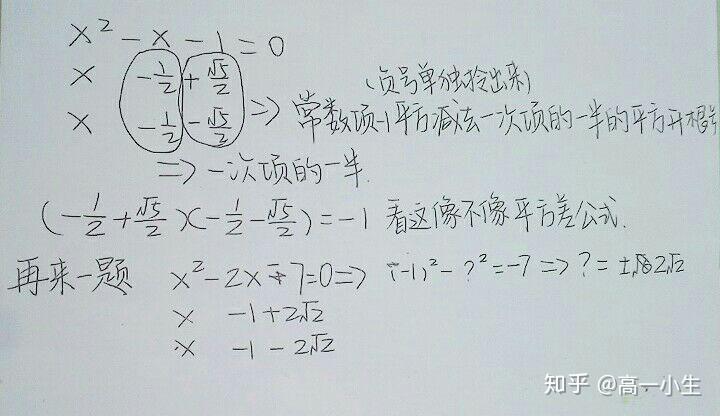 x² - x - 1 = 0
x - 1/2 + √5/2 (负号单独拎出来)
x - 1/2 - √5/2 => 常数项-1平方减去一次项的一半的平方开根号
=> 一次项的一半.
(-1/2 + √5/2)(-1/2 - √5/2) = -1 看这像不像平方差公式.
再来一题 x² - 2x - 7 = 0 => (-1)² - ?² = -7 => ? = ±√8 2√2
x -1 + 2√2
x -1 - 2√2
知乎 @高一小生